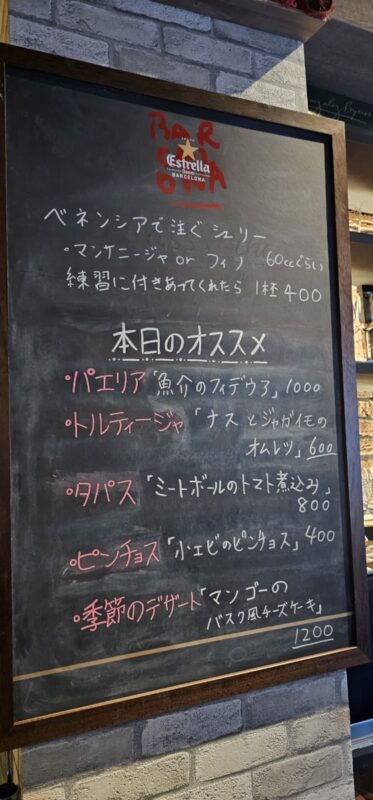 BAR
CEL
ONA
Estrella
Damm
BARCELONA
ベネンシアで注ぐシェリー
・マンサニージャ or フィノ 60ccぐらい
練習に付きあってくれたら 1杯 400
本日のオススメ
・パエリア「魚介のフィデウア」1000
・トルティージャ「ナスとジャガイモの
オムレツ」600
・タパス「ミートボールのトマト煮込み」
800
・ピンチョス「小エビのピンチョス」400
・季節のデザート「マンゴーの
バスク風チーズケーキ」
1200